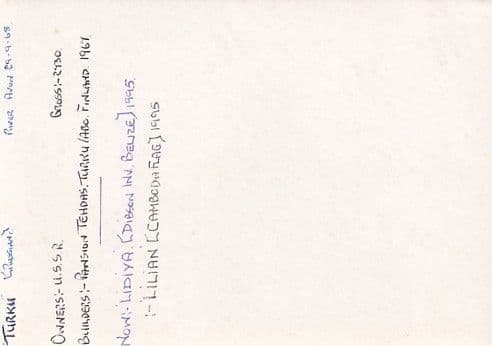 TURKU (RUSSIAN) RIVER AVON 29.9.68
OWNERS:- U.S.S.R. GROSS:- 2730.
BUILDERS:- TEHDAS. TURKU/ABO. FINLAND. 1967.
NOW:- LIDIYA. [DIBSON INV. BELIZE] 1995.
:- LILIAN [CAMBODIA FLAG] 1995